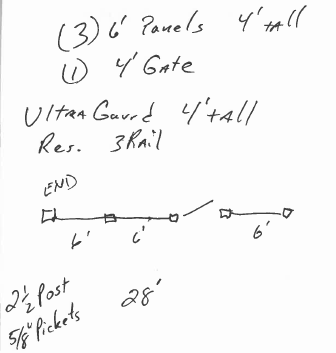 (3) 6' Panels 4' tAll
(1) 4' GAte
UltraGaurd 4' tAll
Res. 3RAil
END
6' 6' 6'
2 1/2 Post 28'
5/8" Pickets